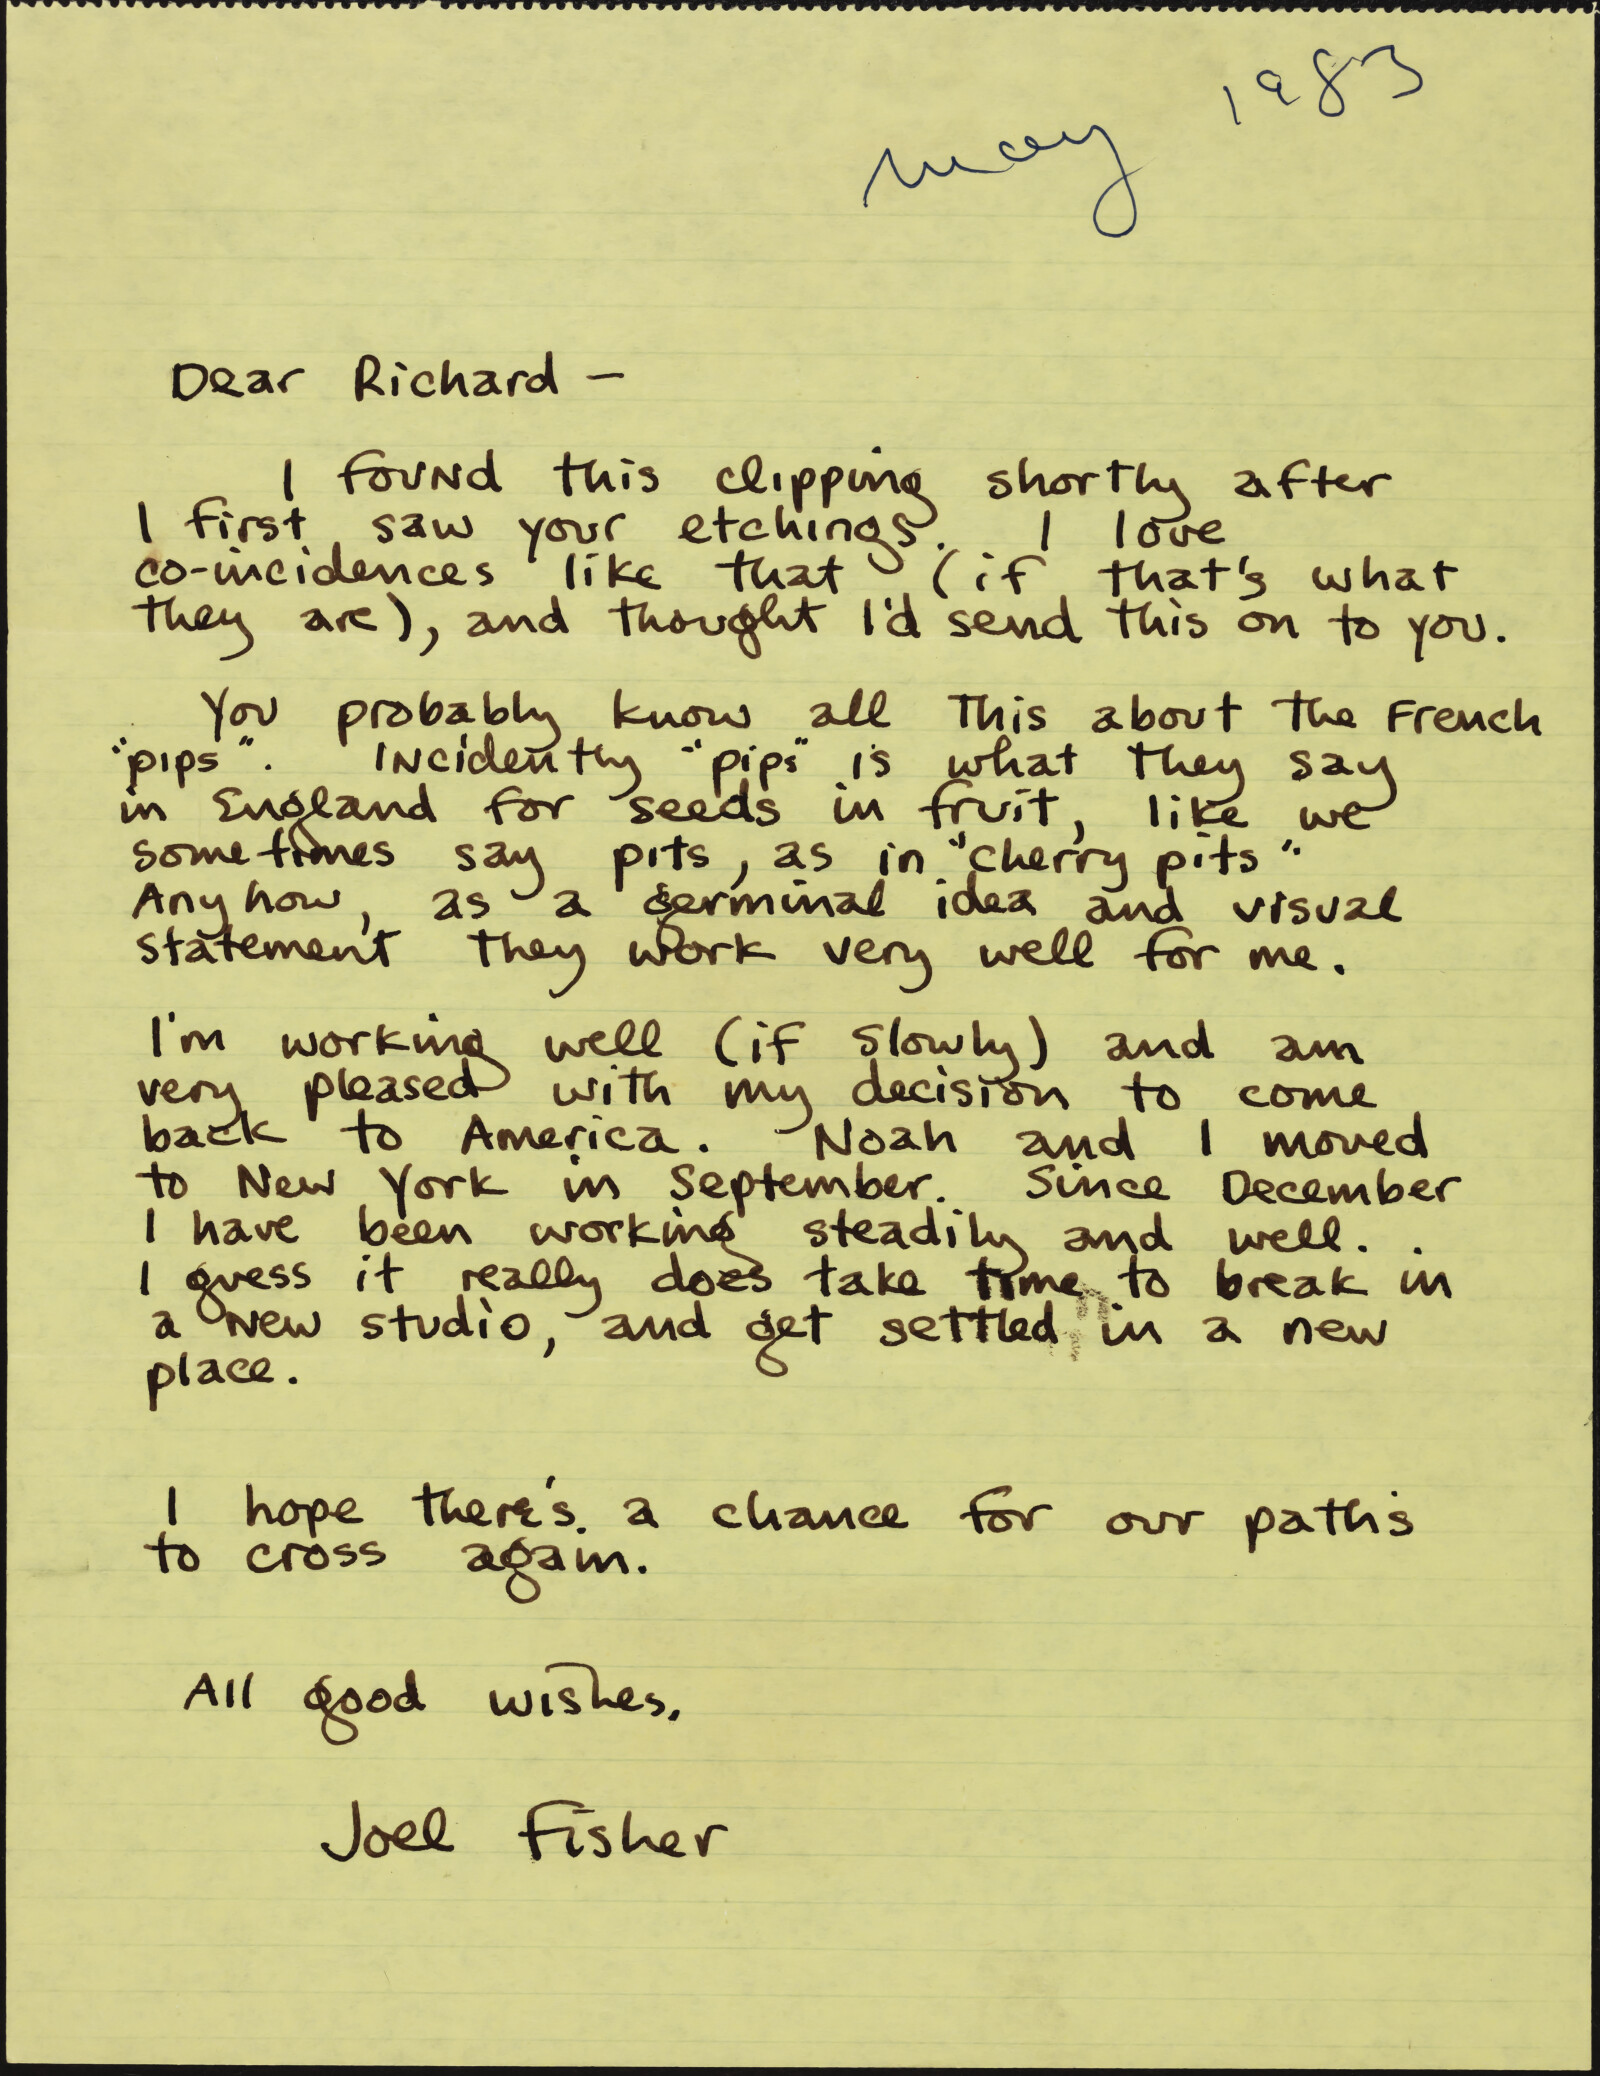 may 1983
Dear Richard —
I found this clipping shortly after
I first saw your etchings. I love
co-incidences like that (if that's what
they are), and thought I'd send this on to you.
You probably know all this about the French
"pips". Incidently "pips" is what they say
in England for seeds in fruit, like we
sometimes say pits, as in "cherry pits"
Anyhow, as a germinal idea and visual
statement they work very well for me.
I'm working well (if slowly) and am
very pleased with my decision to come
back to America. Noah and I moved
to New York in September. Since December
I have been working steadily and well.
I guess it really does take time to break in
a new studio, and get settled in a new
place.
I hope there's a chance for our paths
to cross again.
All good wishes,
Joel Fisher